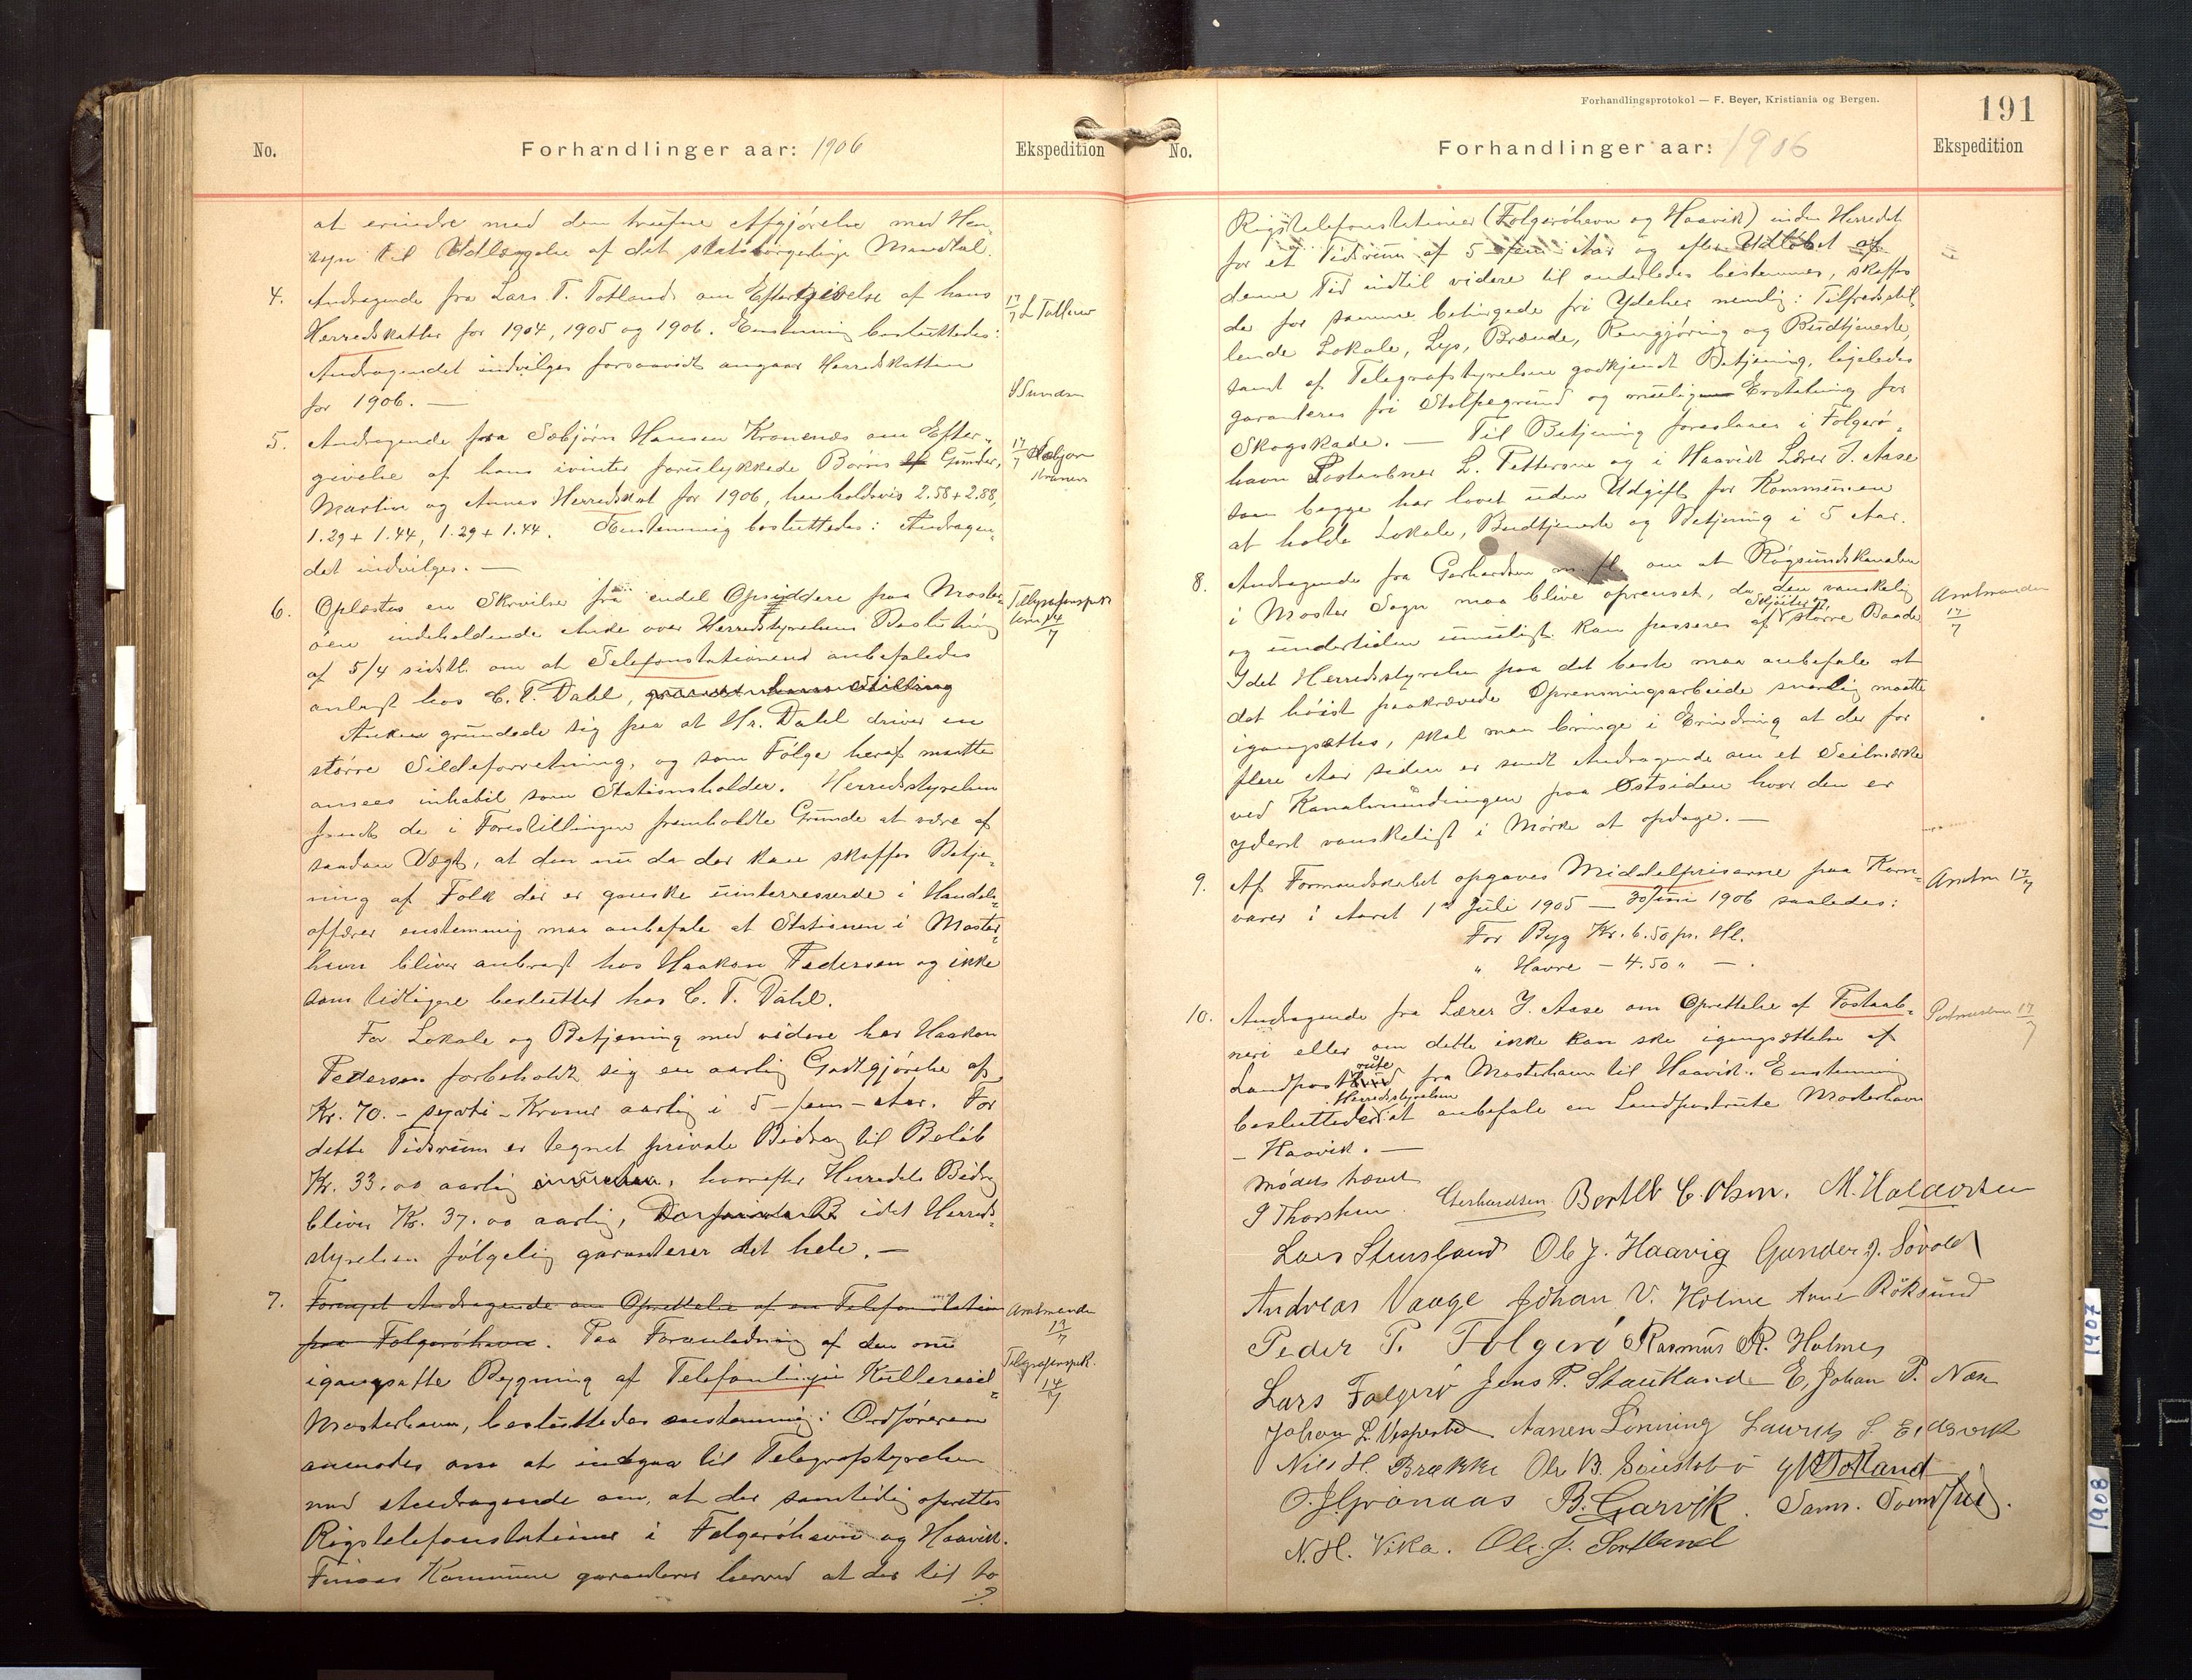 No.
Forhandlinger aar: 1906
Ekspedition
at erindre med den trufne Afgjørelse med Hen-
syn til Udlæggelse af det statsborgerlige Mandtal.
4. Andragende fra Lars T. Totland om Eftergivelse af hans
Herredsskatter for 1904, 1905 og 1906. Enstemmig besluttedes:
Andragendet indvilges forsaavidt angaar Herredskatten
for 1906. —
17/7 L Totland
5. Andragende fra Sæbjørn Hansen Kronenes om Efter-
givelse af hans ivinter forulykkede Børns Gunder,
Martin og Annas Herredsskat for 1906, henholdsvis 2.58 + 2.88,
1.29 + 1.44, 1.29 + 1.44. Enstemmig besluttedes: Andragen-
det indvilges. —
17/7
6. Oplæstes en Skrivelse fra endel Opsiddere paa Moster-
øen indeholdende Anke over Herredsstyrelsens Beslutning
af 5/4 sidstl. om at Telefonstationens anbefaledes
anbragt hos C. T. Dahl,
Anken grundede sig paa at Hr. Dahl driver en
større Sildeforretning, og som Følge heraf maatte
ansees inhabil som Stationsholder. Herredsstyrelsen
fandt de i Forestillingen fremholdte Grunde at være af
saadan Vægt, at den nu da der kan skaffes Betje-
ning af Folk der er ganske uinterresserede i Handels-
affærer enstemmig maa anbefale at Stationen i Moster-
havn bliver anbragt hos Haakon Pedersen og ikke
som tidligere besluttet hos C. T. Dahl.
For Lokale og Betjening med videre har Haakon
Pedersen forbeholdt sig en aarlig Godtgjørelse af
Kr. 70. – sytti – Kroner aarlig i 5 – fem – Aar. For
dette Tidsrum er tegnet private Bidrag til Beløb
Kr. 33.00 aarlig, hvorefter Herredets Bidrag
bliver Kr. 37.00 aarlig, idet Herreds-
styrelsen følgelig garanterer det hele. —
7. Fornyet Andragende om Oprettelse af en Telefonstation
paa Folgerøhavn. Paa Foranledning af den nu
igangsatte Bygning af Telefonlinjen Kulleseid-
Mosterhavn, besluttedes enstemmig: Ordføreren
anmodes om at indgaa til Telegrafstyrelsen
med Andragende om, at der samtidig oprettes
Rigstelefonstationer i Folgerøhavn og Haavik.
Finaas Kommune garanterer herved at der til to
Amtmanden 17/7
Telegrafinspek. 14/7
Forhandlingsprotokol — F. Beyer, Kristiania og Bergen.
191
No.
Forhandlinger aar: 1906
Ekspedition
Rigstelefonstationer (Folgerøhavn og Haavik) inden Herredet
for et Tidsrum af 5 fem Aar og efter Udløbet af
denne Tid indtil videre til anderledes bestemmes, skaffes
de for samme betingede fri Ydelser nemlig: Tilfredsstil-
lende Lokale, Lys, Brænde, Rengjøring og Budtjeneste,
samt af Telegrafstyrelsen godkjendt Betjening, ligeledes
garanteres fri Stolpegrund og mulig Erstatning for
Skogskade. — Til Betjening foreslaaes i Folgerø-
havn Postaabner L. Pettersen og i Haavik Lærer J. Aase
som begge har lovet uden Udgift for Kommunen
at holde Lokale, Budtjeneste og Betjening i 5 Aar.
8. Andragende fra Gerhardsen m fl. om at Røgsundskanalen
i Moster Sogn maa blive oprenset, da den vanskelig
og undertiden umuligt kan passeres af Skøiter og større Baade
Idet Herredsstyrelsen paa det beste maa anbefale at
det høist paakrævede Oprensningsarbeide snarlig maatte
igangsættes, skal man bringe i Erindring at der for
flere Aar siden er sendt Andragende om et Seilmærke
ved Kanalmundingen paa Østsiden hvor den er
yderst vanskeligst i Mørke at opdage. —
Amtmanden 17/7
9. Af Formandskabet opgaves Middelpriserne paa Korn-
varer i Aaret 1ste Juli 1905 — 30 Juni 1906 saaledes:
For Byg Kr. 6.50 pr. Hl.
" Havre – 4.50 " — .
Amtm 17/7
10. Andragende fra Lærer J. Aase om Oprettelse af Postaab-
neri eller om dette ikke kan ske igangsættelse af
Landpostrute fra Mosterhavn til Haavik. Enstemmig
besluttede Herredsstyrelsen at anbefale en Landpostrute Mosterhavn
– Haavik. —
Postmesteren 17/7
Mødet hævet
P Thorsken. Gerhardsen. Bertel C. Olsen. M. Halvorsen
Lars Stursland Ole J. Haavig Gunder J. Søvold
Andreas Vaage Johan V. Holme Arne Röksund
Peder P. Folgerö Rasmus R. Holmes
Lars Folgerø Jens P. Staukland E, Johan P. Næs
Johan L. Vespestad Aamen Lønning Laurits S. Eidsvik
Nils H. Brække Ole B. Seiustobø Totland
O. J. Grønaas B. Garvik. Sams.
N. H. Vika. Ole. J. Sortland
1907
1908